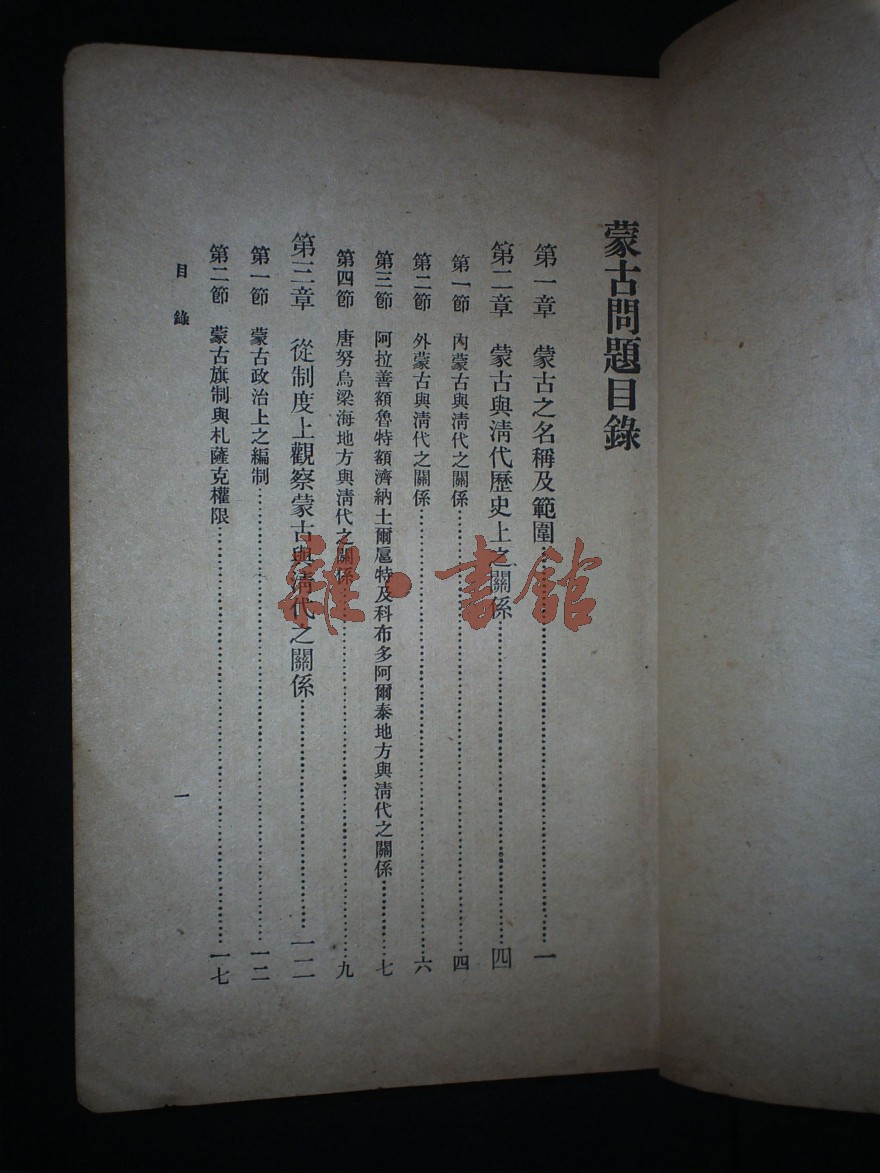 蒙古問題目錄
第一章　蒙古之名稱及範圍……一
第二章　蒙古與清代歷史上之關係……四
第一節　內蒙古與清代之關係……四
第二節　外蒙古與清代之關係……六
第三節　阿拉善額魯特額濟納土爾扈特及科布多阿爾泰地方與清代之關係……七
第四節　唐努烏梁海地方與清代之關係……九
第三章　從制度上觀察蒙古與清代之關係……一二
第一節　蒙古政治上之編制……一二
第二節　蒙古旗制與札薩克權限……一七
目錄
一
雜·書館